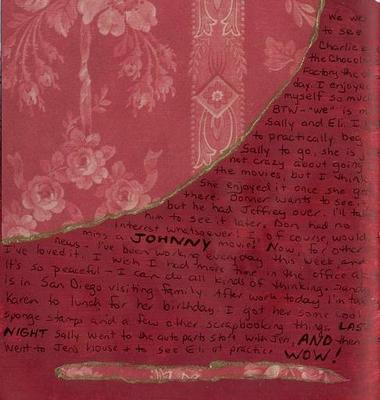 We we
to see
Charlie a
the Chocol
Factory the o
day. I enjoye
myself so muc
BTW - "we" is m
Sally and Eli. I
to practically beg
Sally to go, she is j
not crazy about going
the movies, but I think
She enjoyed it once she go
there. Donner wants to see i
but he had Jeffrey over. I'll ta
him to see it later. Don had no
interest whatsoever! I of course, would
miss a JOHNNY movie! Now for other
news - I've been working everyday this week and
I've loved it. I wish I had more time in the office al
It's so peaceful - I can do all kinds of thinking.
is in San Diego visiting family. After work today I'm tak
Karen to lunch for her birthday. I got her some cool
sponge stamps and a few other scrapbooking things. LAS
NIGHT Sally went to the auto parts store with Jen, AND then
went to Jen's house & to see Eli at practice. WOW!